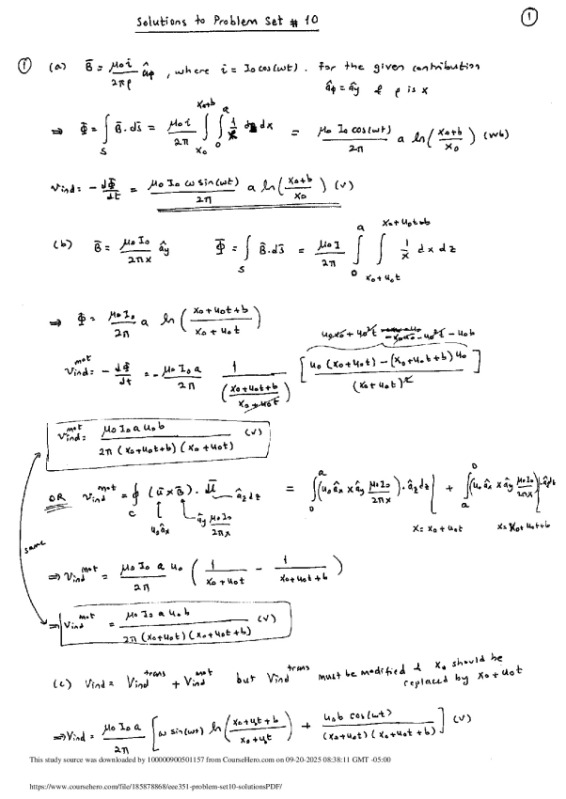 Solutions to Problem Set # 10
①
① (a) B̄ = μ₀i / 2πρ âφ , where i = I₀ cos(ωt). For the given contribution
âφ = ây & ρ is x
⇒ Φ = ∫_S B̄·ds̄ = μ₀i/2π ∫_{x₀}^{x₀+b} ∫_0^a 1/x dz dx = μ₀ I₀ cos(ωt)/2π a ln((x₀+b)/x₀) (Wb)
Vind = - dΦ/dt = μ₀ I₀ ω sin(ωt)/2π a ln((x₀+b)/x₀) (V)
(b) B̄ = μ₀ I₀/2πx ây Φ = ∫_S B̄·ds̄ = μ₀ I/2π ∫_0^a ∫_{x₀+u₀t}^{x₀+u₀t+b} 1/x dx dz
⇒ Φ = μ₀ I₀/2π a ln((x₀+u₀t+b)/(x₀+u₀t))
u₀x₀ + u₀²t - u₀x₀ - u₀²t - u₀b
Vind^mot = - dΦ/dt = - μ₀ I₀ a/2π 1/((x₀+u₀t+b)/(x₀+u₀t)) [(u₀(x₀+u₀t) - (x₀+u₀t+b)u₀)/(x₀+u₀t)²]
Vind^mot = μ₀ I₀ a u₀b / 2π(x₀+u₀t+b)(x₀+u₀t) (V)
OR Vind^mot = ∮_C (ū×B̄)·dl̄ = ∫_0^a (u₀ âx × ây μ₀I₀/2πx)·âz dz | + ∫_a^0 (u₀ âx × ây μ₀I₀/2πx) âz dz
âz dz
u₀âx ây μ₀I₀/2πx x = x₀+u₀t x = x₀+u₀t+b
same
⇒ Vind^mot = μ₀ I₀ a u₀/2π (1/(x₀+u₀t) - 1/(x₀+u₀t+b))
⇒ Vind^mot = μ₀ I₀ a u₀b / 2π(x₀+u₀t)(x₀+u₀t+b) (V)
(c) Vind = Vind^trans + Vind^mot but Vind^trans must be modified & x₀ should be
replaced by x₀+u₀t
⇒ Vind = μ₀ I₀ a/2π [ω sin(ωt) ln((x₀+u₀t+b)/(x₀+u₀t)) + u₀b cos(ωt)/(x₀+u₀t)(x₀+u₀t+b)] (V)
This study source was downloaded by 100000900501157 from CourseHero.com on 09-20-2025 08:38:11 GMT -05:00
https://www.coursehero.com/file/185878868/eee351-problem-set10-solutionsPDF/